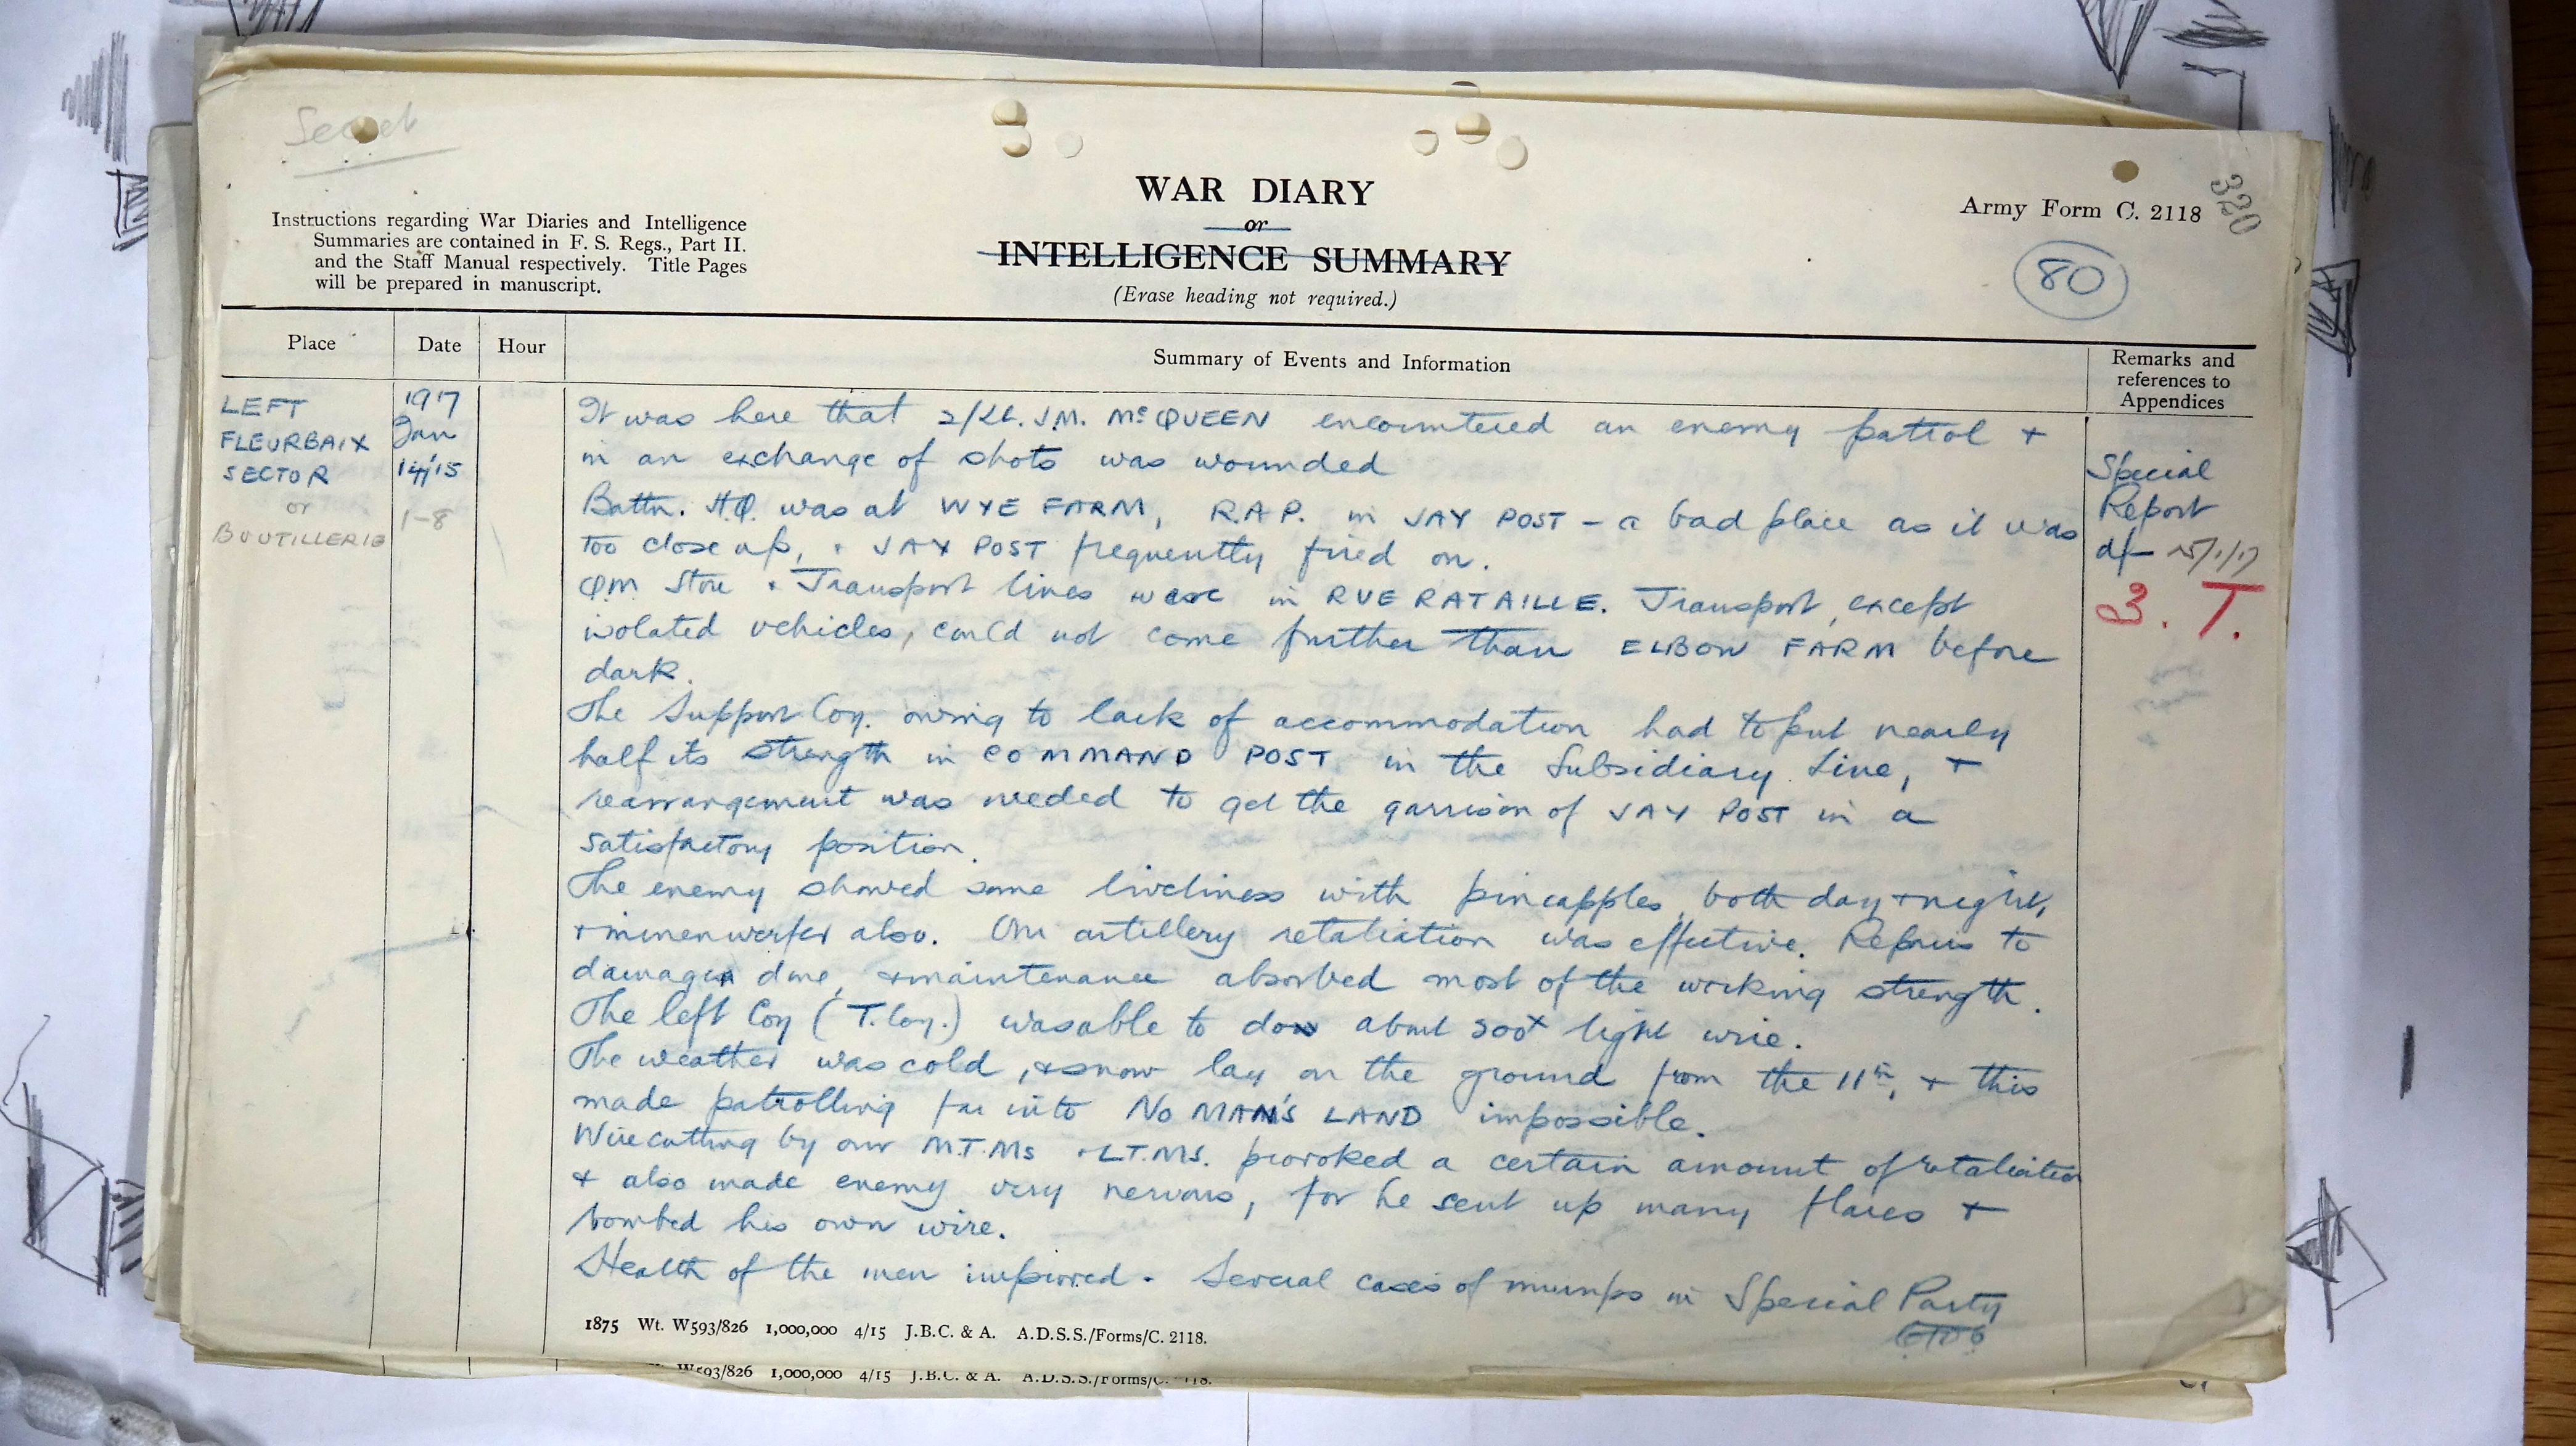 Secret
320
WAR DIARY
or
INTELLIGENCE SUMMARY
(Erase heading not required.)
Instructions regarding War Diaries and Intelligence
Summaries are contained in F. S. Regs., Part II.
and the Staff Manual respectively. Title Pages
will be prepared in manuscript.
Army Form C. 2118
80
Place
Date
Hour
Summary of Events and Information
Remarks and
references to
Appendices
LEFT
FLEURBAIX
SECTOR
or
BOUTILLERIE
1917
Jan
14/15
1-8
It was here that 2/Lt. J.M. McQUEEN encountered an enemy patrol +
in an exchange of shots was wounded
Battn. H.Q. was at WYE FARM, R.A.P. in JAY POST - a bad place as it was
too close up, + JAY POST frequently fired on.
QM Store + Transport lines were in RUE RATAILLE. Transport, except
isolated vehicles, could not come further than ELBOW FARM before
dark.
The Support Coy. owing to lack of accommodation had to put nearly
half its strength in COMMAND POST in the Subsidiary Line, +
rearrangement was needed to get the garrison of JAY POST in a
satisfactory position.
The enemy showed some liveliness with pineapples, both day + night,
+ minenwerfer also. Our artillery retaliation was effective. Repairs to
damage done, + maintenance absorbed most of the working strength.
The left Coy (T. Coy.) was able to do about 500x light wire.
The weather was cold, + snow lay on the ground from the 11th, + this
made patrolling far into NO MAN'S LAND impossible.
Wirecutting by our M.T.Ms + L.T.Ms. provoked a certain amount of retaliation
+ also made enemy very nervous, for he sent up many flares +
bombed his own wire.
Health of the men improved. Several cases of mumps in Special Party
Special
Report
d/- 15/1/17
3. T.
1875 Wt. W593/826 1,000,000 4/15 J.B.C. & A. A.D.S.S./Forms/C. 2118.
W593/826 1,000,000 4/15 J.B.C. & A. A.D.S.S./Forms/C. 2118.